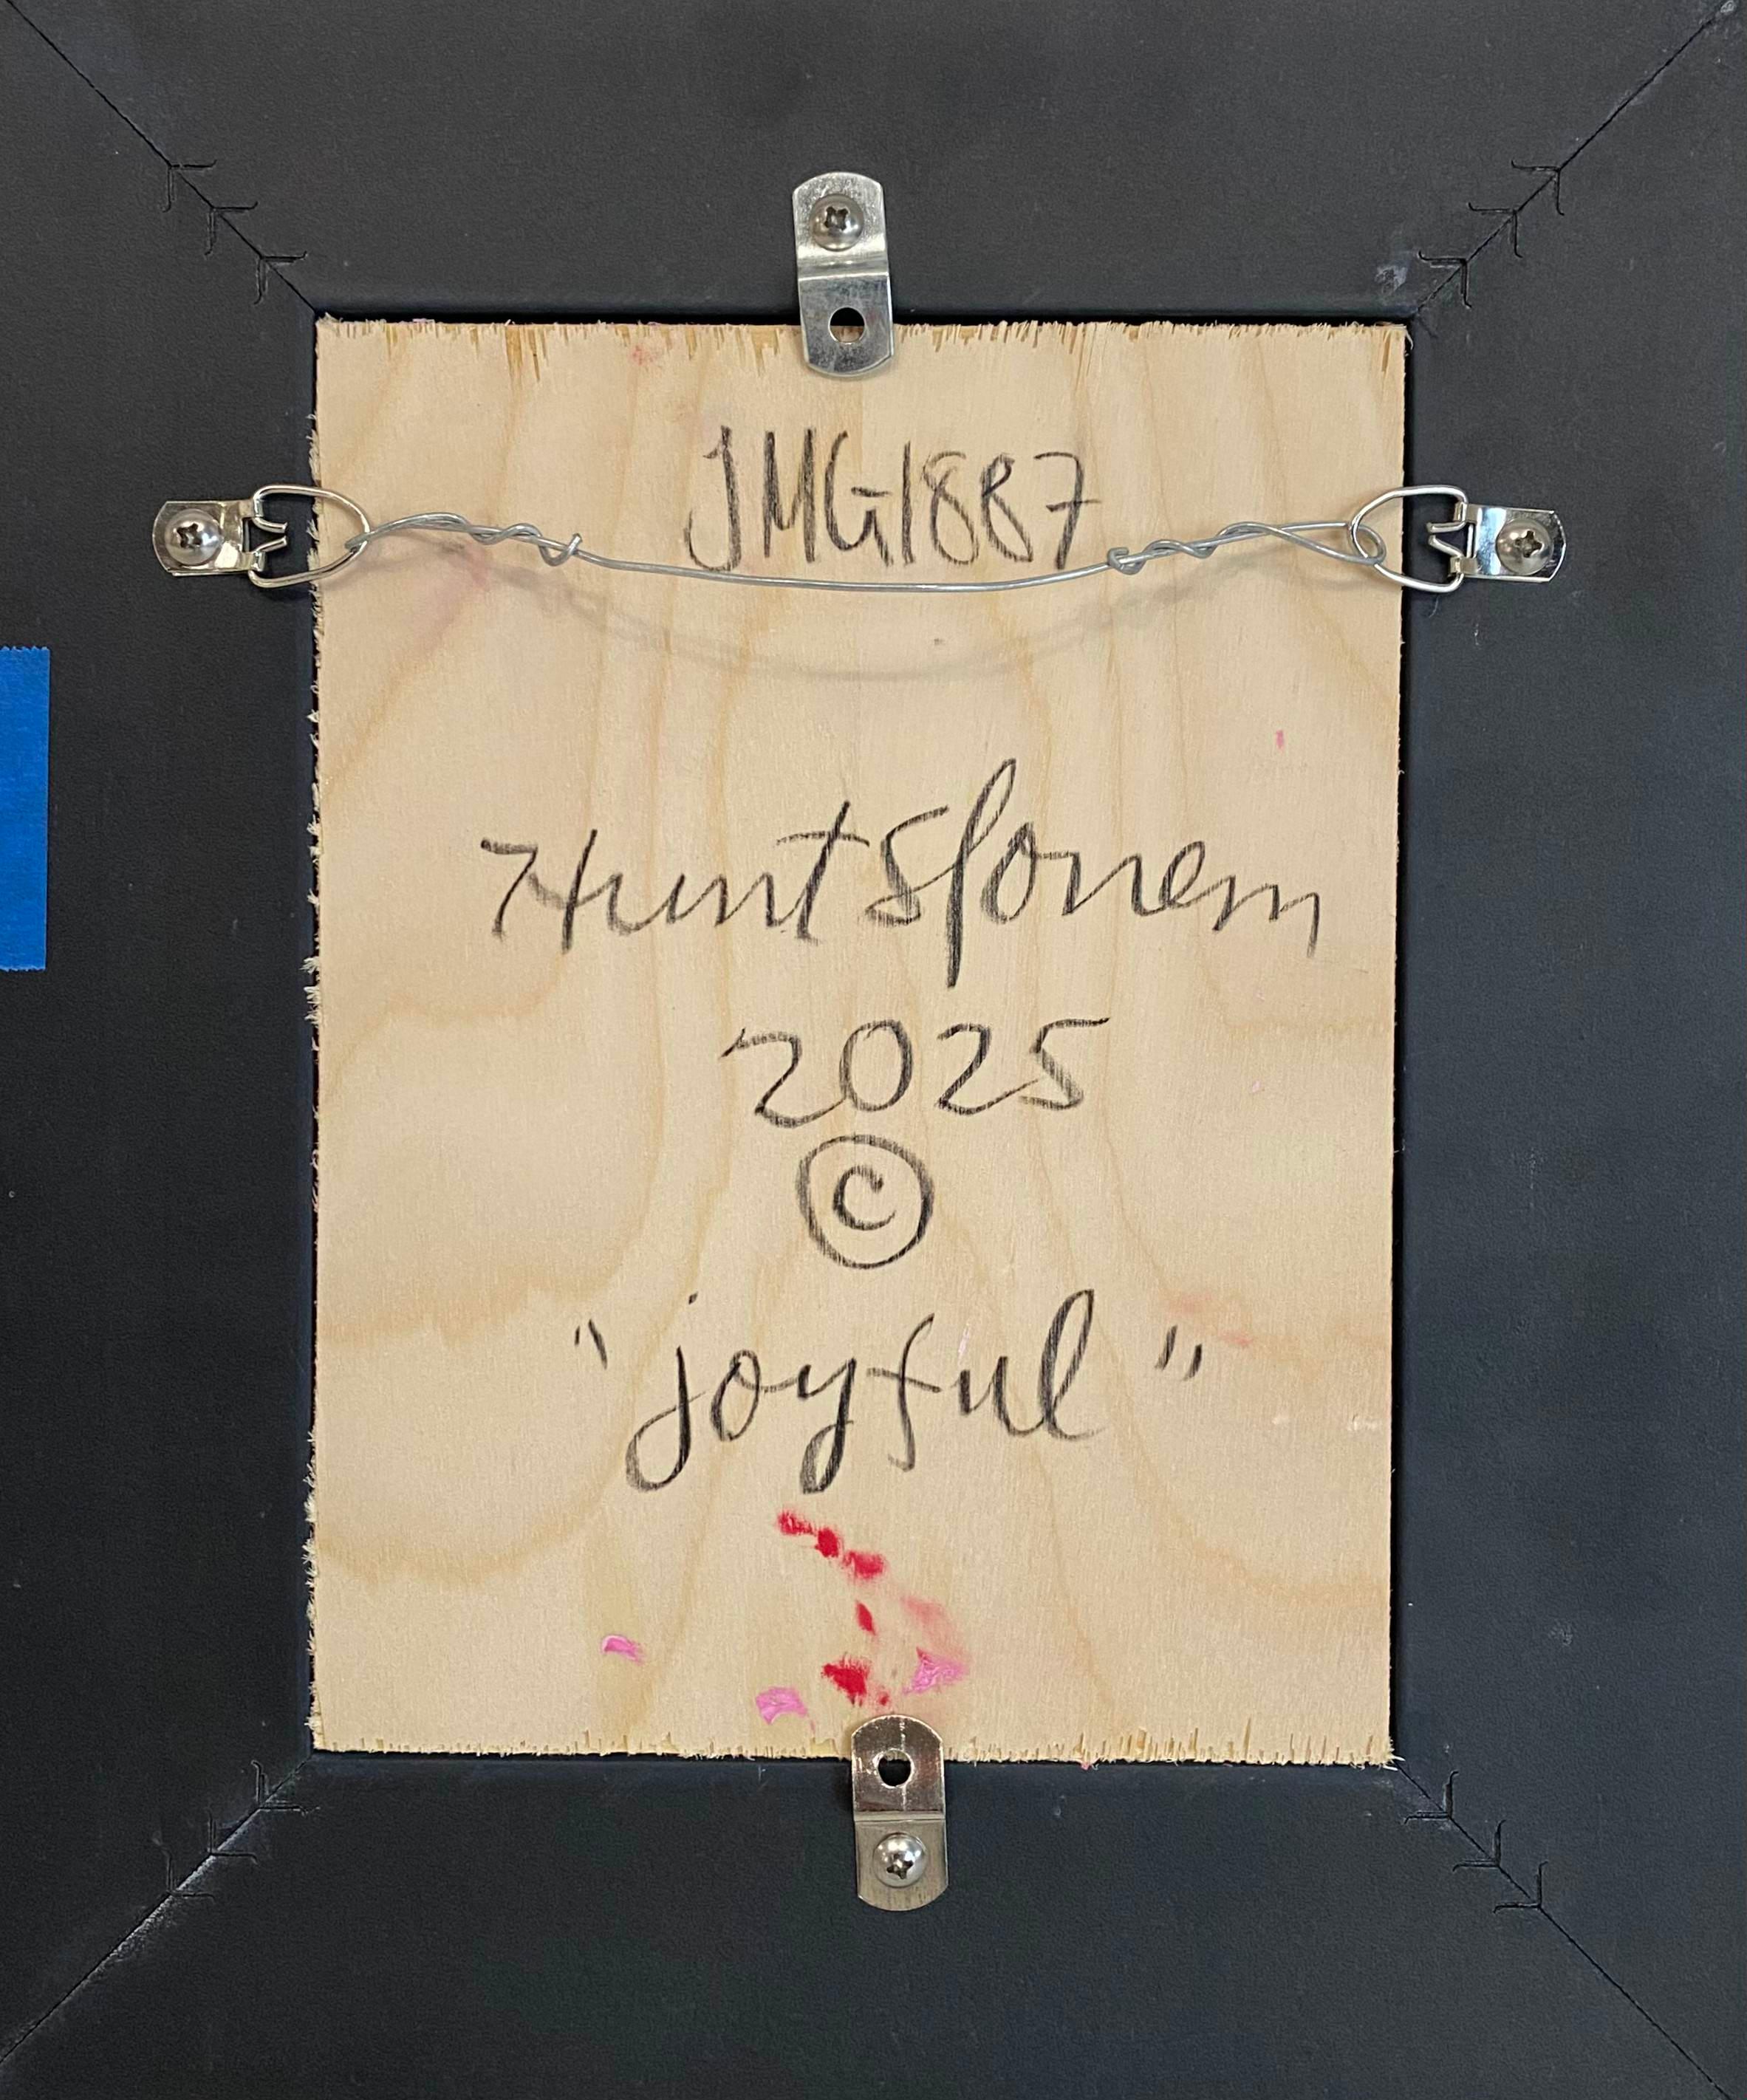 JMG1887
Hunt Slonem
2025
©
"joyful"